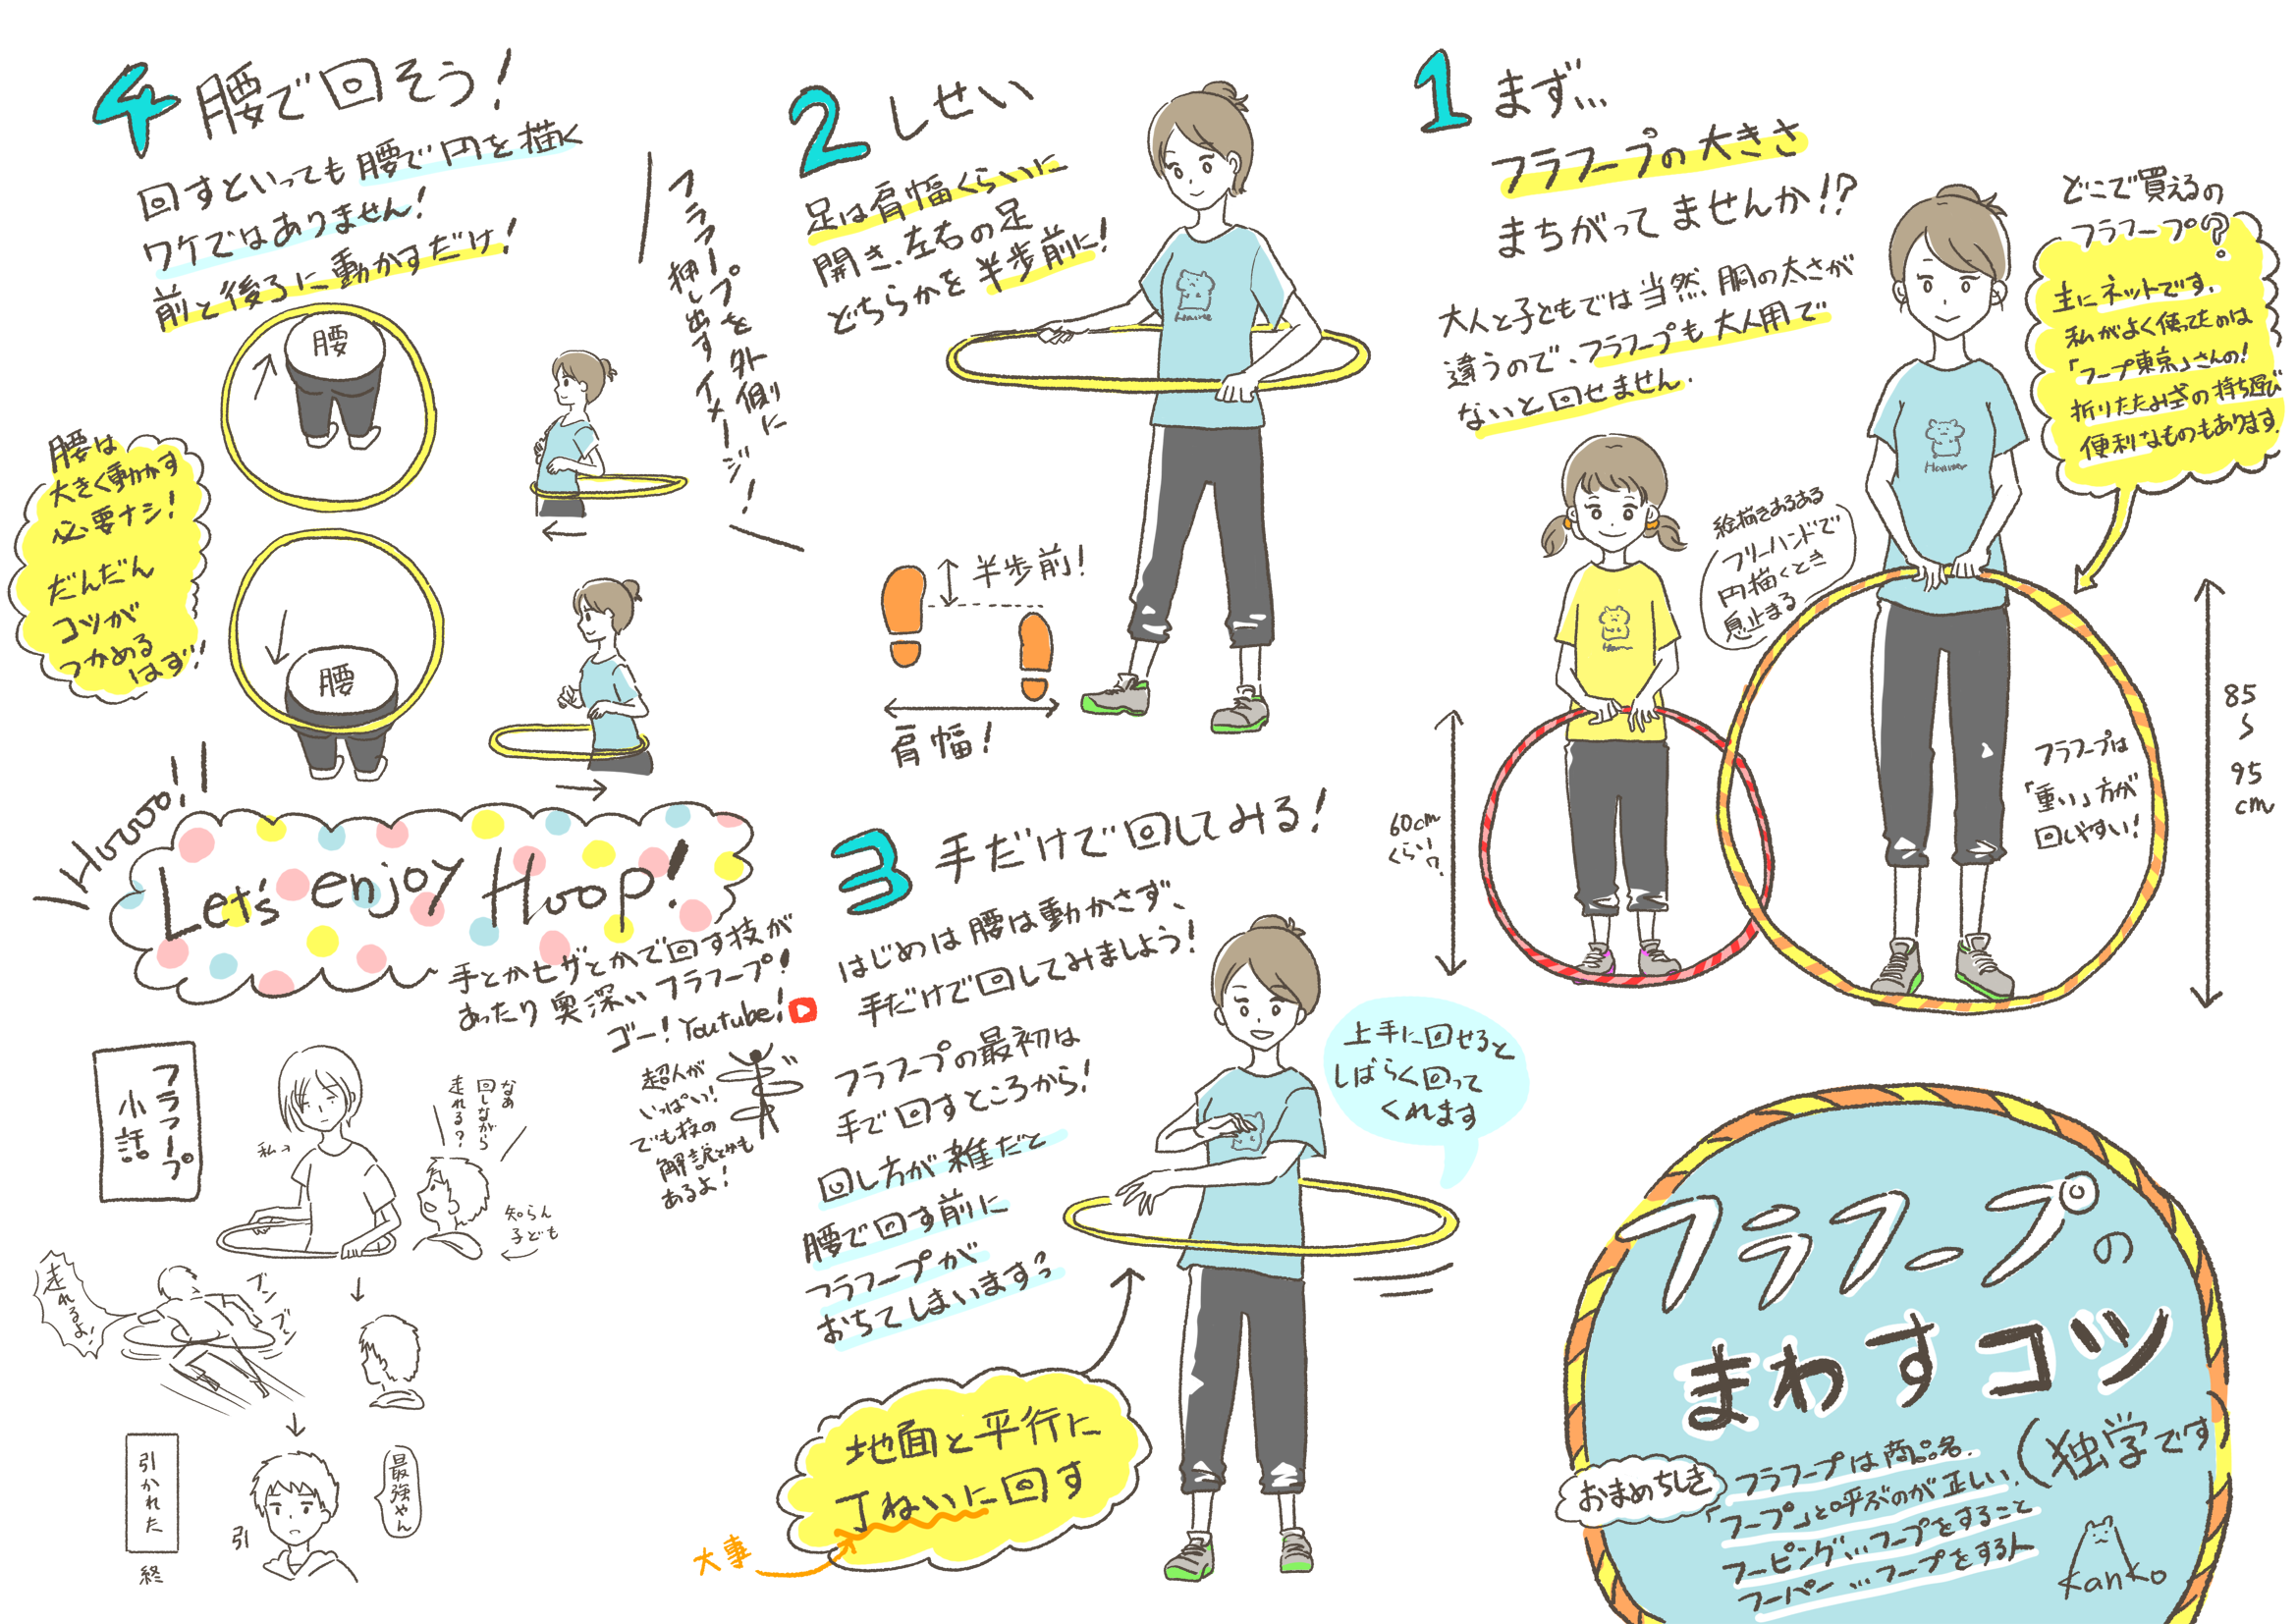 フラフープの
まわすコツ
(独学です)
おまめちしき
フラフープは商品名.
「フープ」と呼ぶのが正しい.
フーピング…フープをすること
フーパー…フープをする人
Kanko
1 まず…
フラフープの大きさ
まちがってませんか!?
大人と子どもでは当然、胴の太さが
違うので、フラフープも大人用で
ないと回せません.
どこで買えるの
フラフープ?
主にネットです.
私がよく使ってたのは
「フープ東京」さんの!
折りたたみ式の持ち運び
便利なものもあります.
絵描きあるある
フリーハンドで
円描くとき
息止まる
60cm
くらい?
85
〜
95
cm
フラフープは
「重い」方が
回しやすい!
2 しせい
足は肩幅くらいに
開き、左右の足
どちらかを半歩前に!
半歩前!
肩幅!
3 手だけで回してみる!
はじめは腰は動かさず、
手だけで回してみましょう!
フラフープの最初は
手で回すところから!
回し方が雑だと
腰で回す前に
フラフープが
おちてしまいます
上手に回せると
しばらく回って
くれます
地面と平行に
丁ねいに回す
大事
4 腰で回そう!
回すといっても腰で円を描く
ワケではありません!
前と後ろに動かすだけ!
フラフープを外側に
押し出すイメージ!
腰
腰
腰は
大きく動かす
必要ナシ!
だんだん
コツが
つかめる
はず!!
Hoooo!!
Let's enjoy Hoop!
手とかヒザとかで回す技が
あったり奥深いフラフープ!
ゴー!Youtube!
超人が
いっぱい!
でも技の
解説とかも
あるよ!
フラフープ
小話
私→
なあ
回しながら
走れる?
知らん
子ども
走れるよ!
ブンブン
最強やん
引
引かれた
終